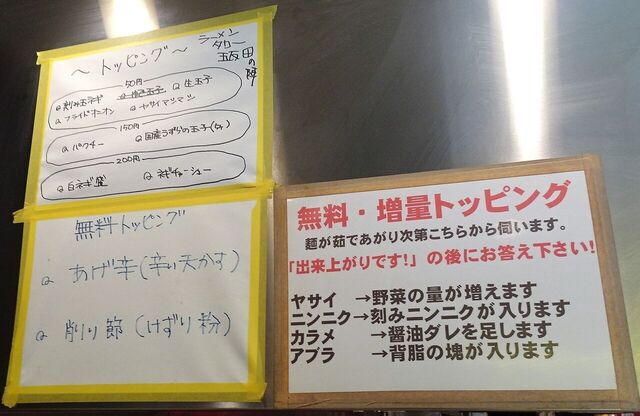 ～トッピング～
ラーメン
タロー
五反田の陣
50円
刻み玉ネギ
ゆで玉子
生玉子
フライドオニオン
ヤサイマシマシ
150円
パクチー
国産うずらの玉子(5ヶ)
200円
白ネギ盛
ネギチャーシュー
無料トッピング
あげ辛(辛い天かす)
削り節(けずり粉)
無料・増量トッピング
麺が茹であがり次第こちらから伺います。
「出来上がりです!」の後にお答え下さい!
ヤサイ →野菜の量が増えます
ニンニク→刻みニンニクが入ります
カラメ →醤油ダレを足します
アブラ →背脂の塊が入ります